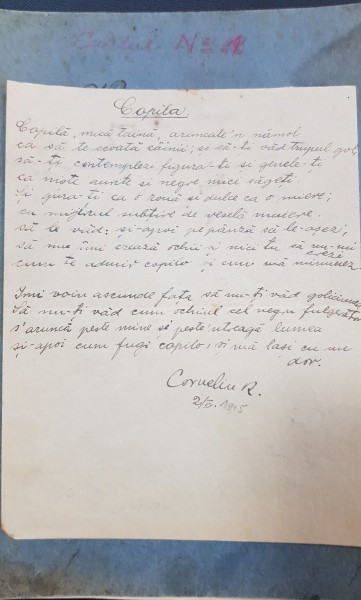 Caetul No 1
Copila.
Copilă, mică taină, aruncate'n nămol
ca să te scoată câinii; și să-ți văd trupul gol,
să-ți contemplez figura-ți și genele-ți
ca niște and și negre mici săgeți.
Și gura-ți ca o rouă și dulce ca o miere;
cu subțire de veselă muiere.
să le văd; și-apoi pe pânză să le-așez,
să nu îmi crează ochii nici tu să nu-mi
crezi
cum te admir copilo și cum mă minunez.
Îmi voiu ascunde fața să nu-ți văd goliciunea
Să nu-ți văd cum ochiul cel negru fulgerător
s'aruncă peste mine și peste'ntreagă lumea
și-apoi cum fugi copilo, și mă lași cu un
dor.
Corneliu R.
1945